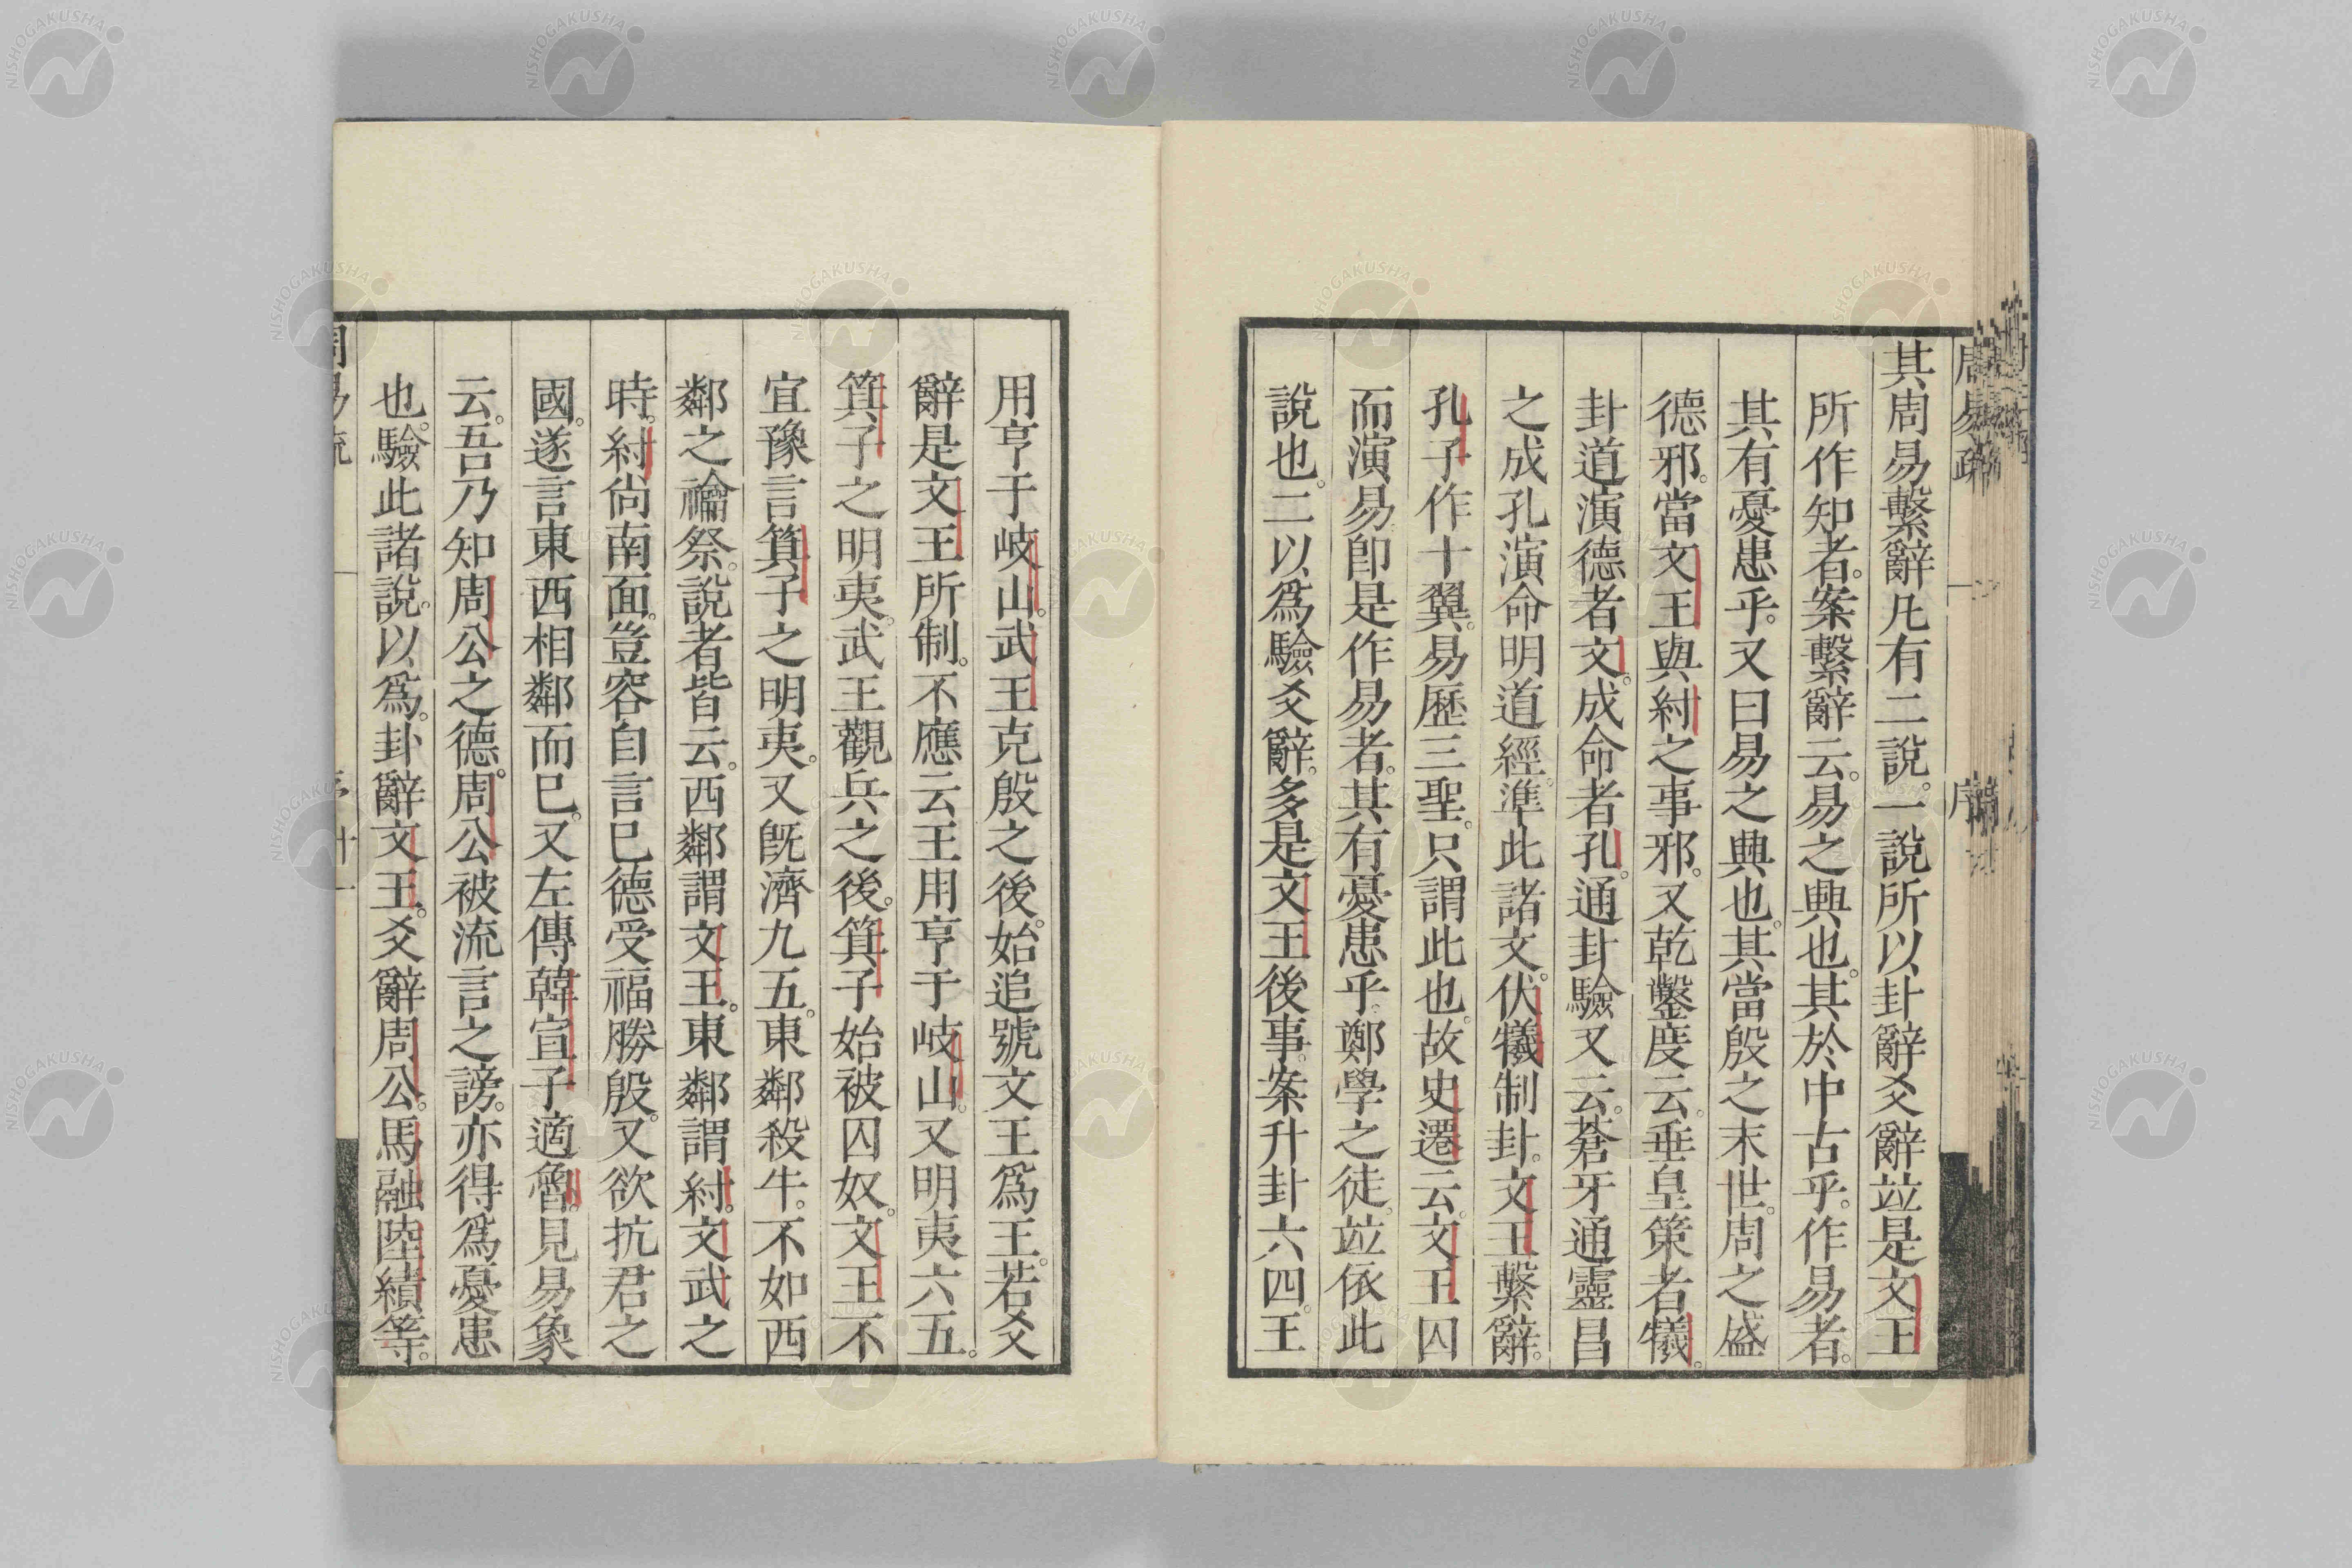 周易疏
序
其周易繫辭凡有二說。一說所以卦辭爻辭竝是文王
所作知者。案繫辭云。易之興也。其於中古乎。作易者。
其有憂患乎。又曰易之興也。其當殷之末世。周之盛
德邪。當文王與紂之事邪。又乾鑿度云。垂皇策者犧。
卦道演德者文。成命者孔。通卦驗又云。蒼牙通靈昌
之成孔演命明道經。準此諸文。伏犧制卦。文王繫辭。
孔子作十翼。易歷三聖。只謂此也。故史遷云。文王囚
而演易卽是作易者。其有憂患乎。鄭學之徒。竝依此
說也。二以爲驗爻辭。多是文王後事。案升卦六四。王
用亨于岐山。武王克殷之後。始追號文王爲王。若爻
辭是文王所制。不應云王用亨于岐山。又明夷六五。
箕子之明夷。武王觀兵之後。箕子始被囚奴。文王不
宜豫言箕子之明夷。又旣濟九五。東鄰殺牛。不如西
鄰之禴祭。說者皆云。西鄰謂文王。東鄰謂紂。文武之
時。紂尙南面。豈容自言已德受福勝殷。又欲抗君之
國。遂言東西相鄰而已。又左傳韓宣子適魯。見易象
云。吾乃知周公之德。周公被流言之謗。亦得爲憂患
也。驗此諸說。以爲。卦辭文王。爻辭周公。馬融陸績等。
NISHOGAKUSHA